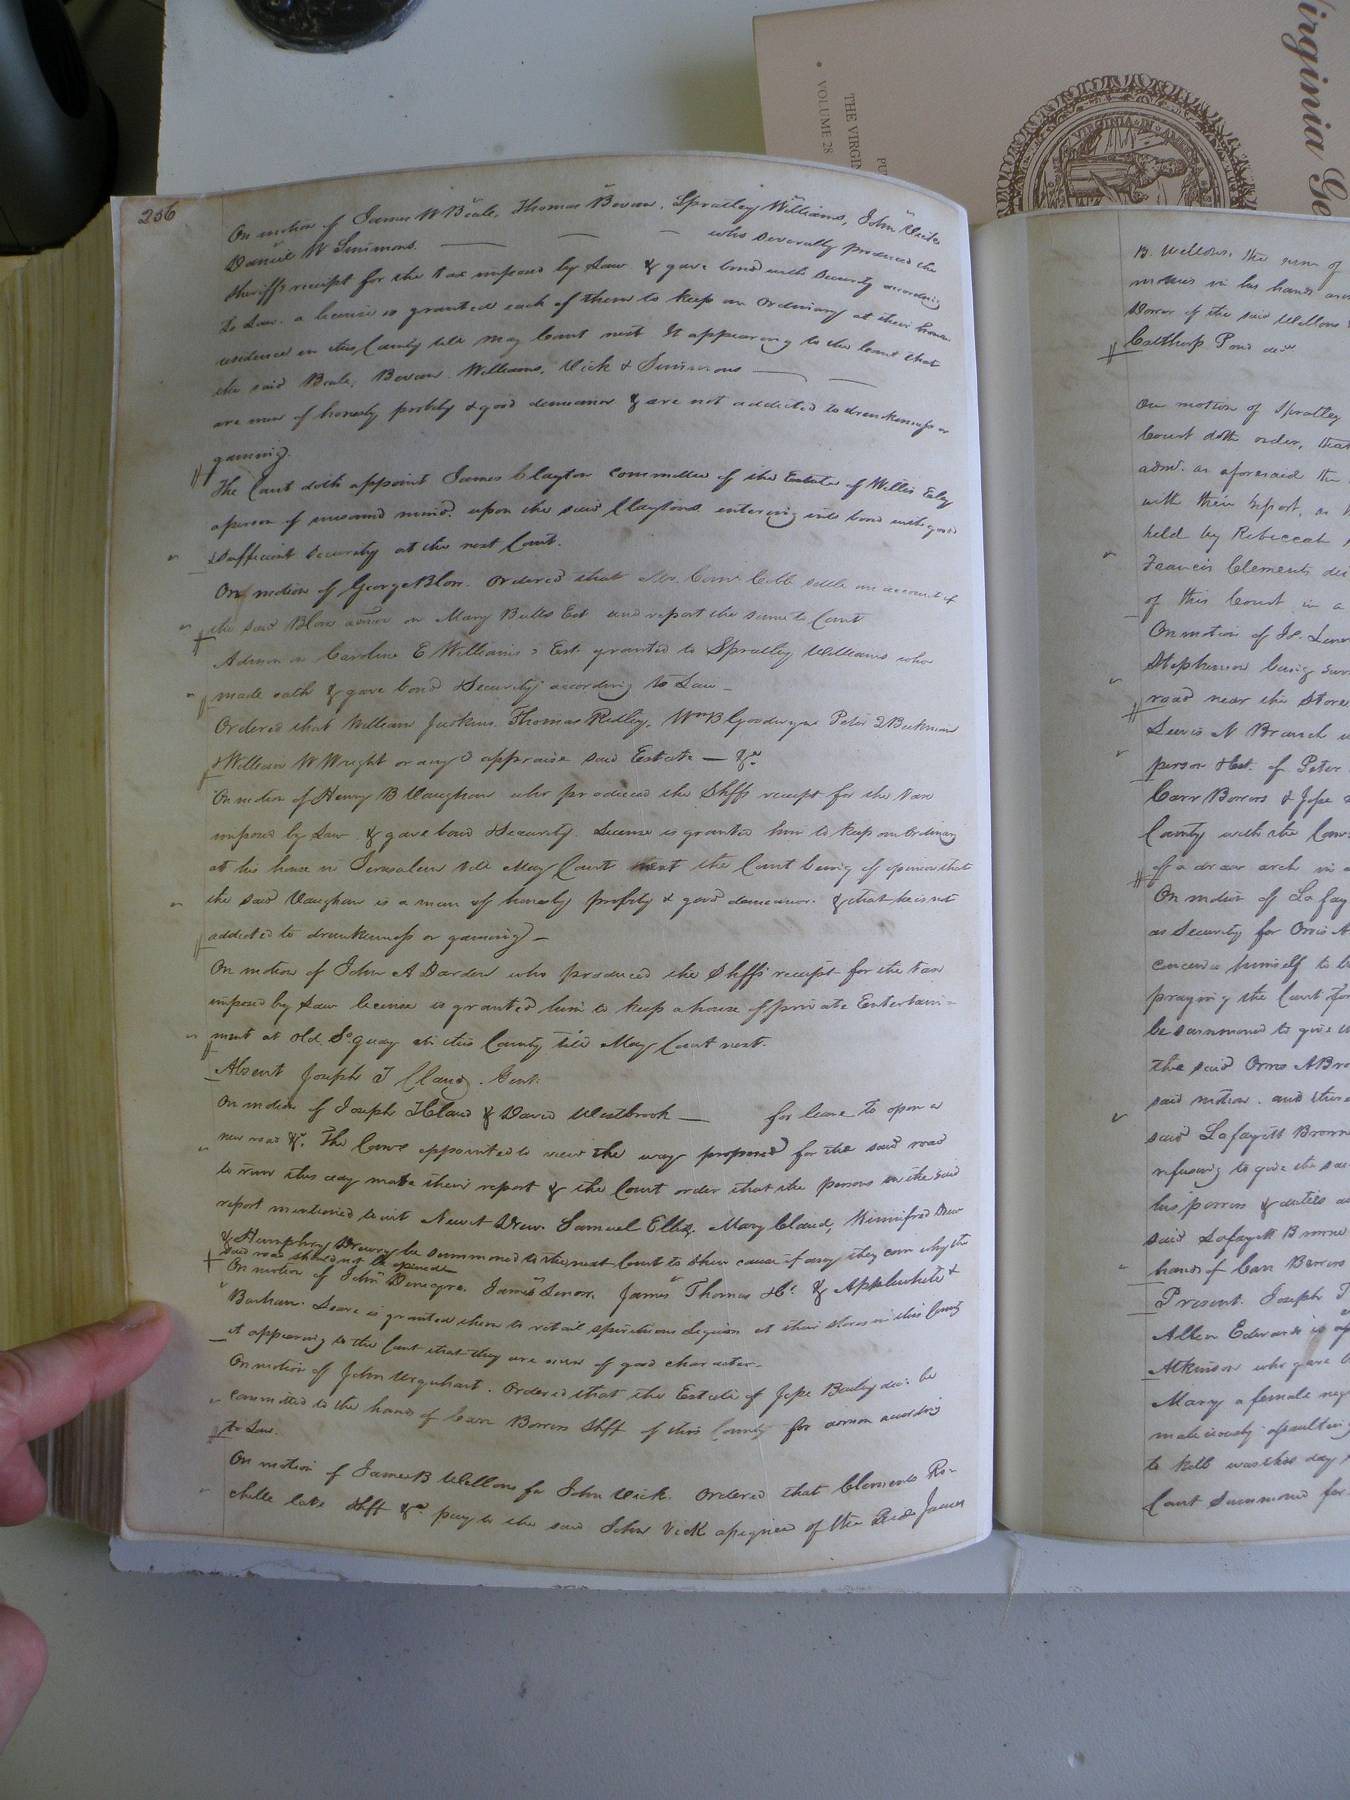 Virginia Ge
THE VIRGIN
VOLUME 28
PU
VIRGINIA
256
On motion of James W Beale, Thomas Bevan, Spratley Williams, John Vick
Daniel W Simmons. — — — who severally produced the
sheriffs receipt for the tax imposed by Law & gave bond with security according
to Law. a license is granted each of them to keep an Ordinary at their
residence in this County till May Court next It appearing to the Court that
the said Beale, Bevan, Williams, Vick & Simmons — —
are men of honesty probity & good demeanor & are not addicted to drunkenness or
gaming.
The Court doth appoint James Clayton committee of the Estate of Willis Eley
a person of unsound mind. upon the said Claytons entering into bond with good
& sufficient security at the next Court.
On motion of George Blow. Ordered that Mr. Cobb settle an account of
the said Blow admor on Mary Butts Est and report the same to Court
Admon on Caroline E Williams's Est. granted to Spratley Williams who
made oath & gave bond & Security according to Law —
Ordered that William Judkins, Thomas Ridley, Wm B Goodwyn Peter J Beckman
& William W Wright or any 3 appraise said Estate — &c.
On motion of Henry B Vaughan who produced the Shffs receipt for the tax
imposed by Law & gave bond & security. License is granted him to keep an Ordinary
at his house in Jerusalem till May Court next the Court being of opinion that
the said Vaughan is a man of honesty probity & good demeanor. & that he is not
addicted to drunkenness or gaming —
On motion of John A Darden who produced the Shffs receipt for the tax
imposed by Law license is granted him to keep a house of private Entertain-
ment at old So quay in this County till May Court next.
Absent Joseph T Claud Gent.
On motion of Joseph T Claud & David Westbrook — for leave to open a
new road &c. The Comrs appointed to view the way proposed for the said road
to run this day made their report & the Court order that the persons in the said
report mentioned to wit Newit Drew. Samuel Ellis, Mary Claud, Winnifred Drew
& Humphrey Drewry be summoned to the next Court to shew cause if any they can why the
said road should not be opened
On motion of John Denegre, James Lenow, James Thomas & Co. & Applewhite &
Barham. Leave is granted them to retail spirituous liquors at their stores in this County
it appearing to the Court that they are men of good character.
On motion of John Urquhart. Ordered that the Estate of Jesse Bailey dec: be
committed to the hands of Carr Bowers Shff of this County for admon according
to Law.
On motion of James B Wellons for John Vick. Ordered that Clements Ro-
chelle late Shff &c pay to the said John Vick assignee of the said James
B. Wellons, the sum of
monies in his hands
favor of the said Wellons
Calthorp Pond decd
On motion of Spratley
Court doth order, that
adm. as aforesaid the
with their report, as
held by Rebeccah
Francis Clements
of this Court in a
On motion of
Stephenson being
road near the Store
Lewis N Branch
person & Est. of Peter
Carr Bowers & Jesse
County with the
of a draw arch in
On motion of Lafay
as Security for Orris A
conceives himself to b
praying the Court for
be summoned to give
the said Orris A Bro
said motion. and
said Lafayett Browne
refusing to give the
his powers & duties
said Lafayett Browne
hands of Carr Bowers
Present. Joseph T
Allen Edwards is
Atkinson who gave
Mary a female neg
maliciously assaulting
to kill was this day
Court Summoned for